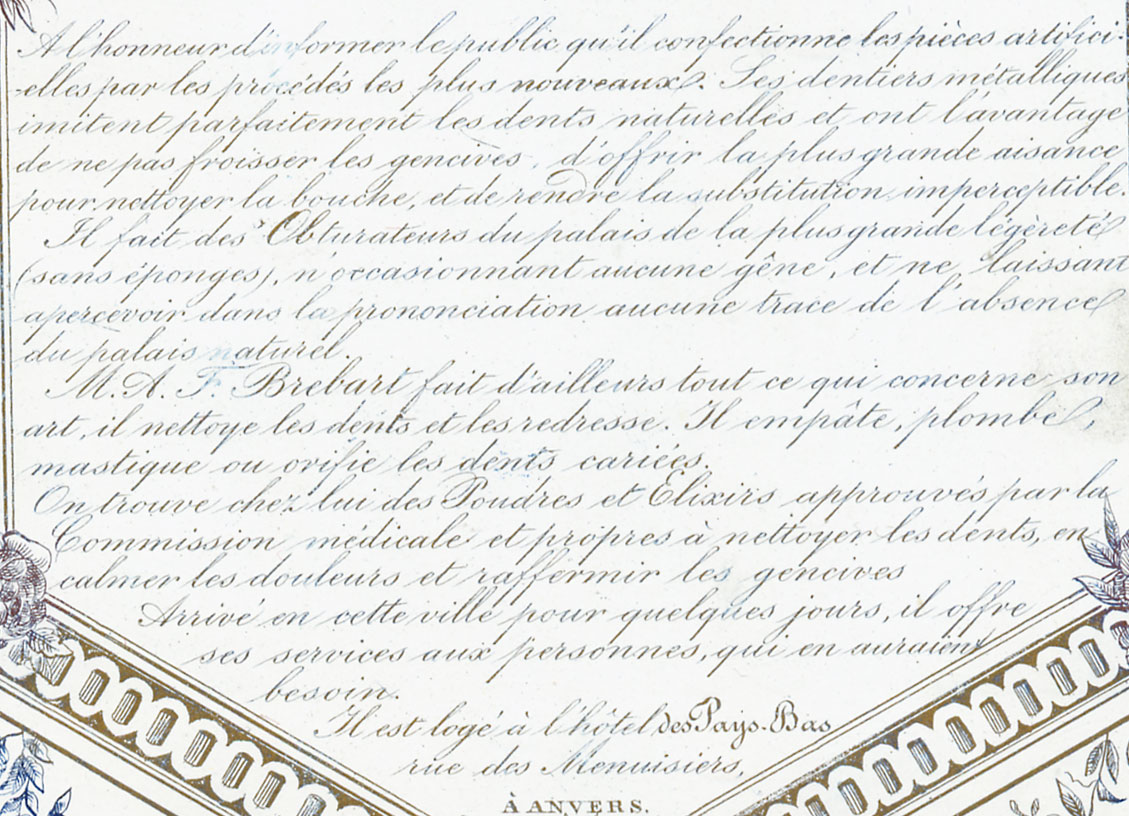 A l'honneur d'informer le public qu'il confectionne les pièces artifici-
-elles par les procédés les plus nouveaux. Ses dentiers métalliques
imitent parfaitement les dents naturelles et ont l'avantage
de ne pas froisser les gencives, d'offrir la plus grande aisance
pour nettoyer la bouche, et de rendre la substitution imperceptible.
Il fait des Obturateurs du palais de la plus grande légèreté
(sans éponges), n'occasionnant aucune gêne, et ne laissant
apercevoir dans la prononciation aucune trace de l'absence
du palais naturel.
M. A. F. Brebart fait d'ailleurs tout ce qui concerne son
art, il nettoye les dents et les redresse. Il empâte, plombe,
mastique ou orifie les dents cariées.
On trouve chez lui des Poudres et Elixirs approuvés par la
Commission médicale et propres à nettoyer les dents, en
calmer les douleurs et raffermir les gencives
Arrivé en cette ville pour quelques jours, il offre
ses services aux personnes, qui en auraient
besoin.
Il est logé à l'hôtel des Pays-Bas
rue des Menuisiers,
À ANVERS.